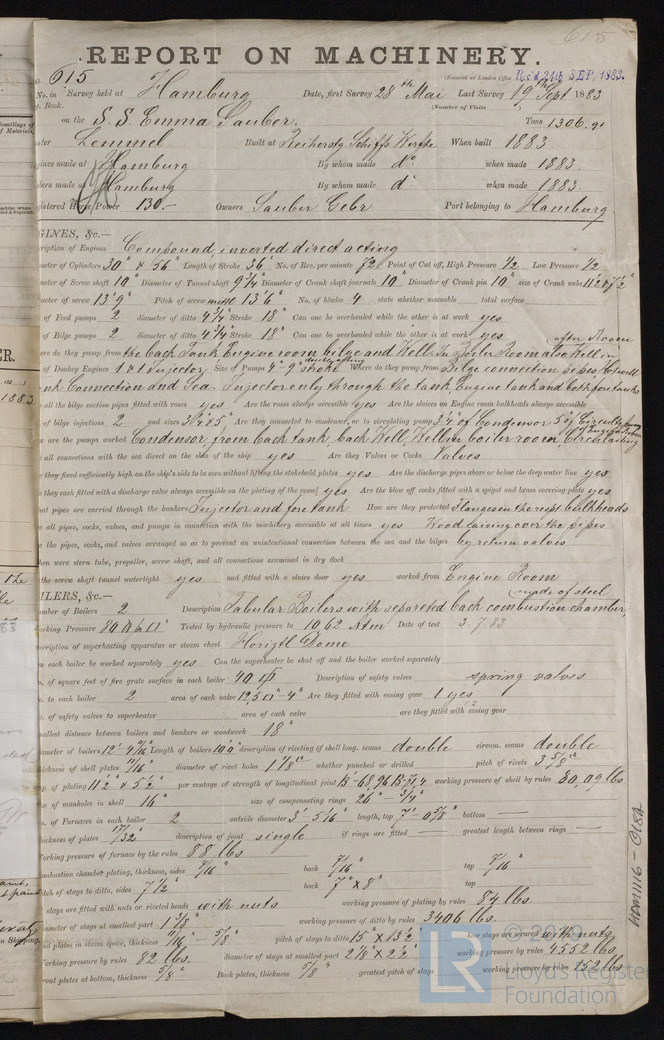 615
REPORT ON MACHINERY.
No. 615 (Received at London Office Rec'd 24th SEP. 1883.
No. in Survey held at Hamburg Date, first Survey 28th Mai Last Survey 19th Sept 1883
g. Book. (Number of Visits
on the S. S. Emma Sauber. Tons 1306.91
ster Lemmel Built at Reiherstg Schiffs Werfte When built 1883
gines made at Hamburg By whom made do when made 1883.
lers made at Hamburg By whom made do when made 1883.
gistered Horse Power 130.- Owners Sauber Gebr Port belonging to Hamburg
GINES, &c.—
scription of Engines Compound inverted direct acting
meter of Cylinders 30" & 56" Length of Stroke 36" No. of Rev. per minute 72 Point of Cut off, High Pressure 1/2 Low Pressure 1/2
meter of Screw shaft 10" Diameter of Tunnel shaft 9 3/4" Diameter of Crank shaft journals 10" Diameter of Crank pin 10" size of Crank webs 11 1/2 & 7 1/2"
meter of screw 13' 9" Pitch of screw 13' 6" No. of blades 4 state whether moveable total surface
of Feed pumps 2 diameter of ditto 4 3/4" Stroke 18" Can one be overhauled while the other is at work yes
of Bilge pumps 2 diameter of ditto 4 3/4" Stroke 18" Can one be overhauled while the other is at work yes
after Room
ere do they pump from the back Tank Engine room bilge and Well in Boiler Room also Well in
of Donkey Engines 1 & 1 Injector Size of Pumps 4" - 9" stroke Where do they pump from Bilge connection pipes, C. well
nk Connection and Sea. Injector only through the tank Engine tank and both fore tanks
all the bilge suction pipes fitted with roses yes Are the roses always accessible yes Are the sluices on Engine room bulkheads always accessible
of bilge injections 2 and sizes Are they connected to condenser, or to circulating pump 3 3/4" of Condensor 5" of Circulating
w are the pumps worked Condensor, from back tank, back Well, Well in boiler room Circulating
all connections with the sea direct on the skin of the ship yes Are they Valves or Cocks Valves
they fixed sufficiently high on the ship's side to be seen without lifting the stokehold plates yes Are the discharge pipes above or below the deep water line yes
they each fitted with a discharge valve always accessible on the plating of the vessel yes Are the blow off cocks fitted with a spigot and brass covering plate yes
hat pipes are carried through the bunkers Injector and fore tank How are they protected Flanges in the resp! bulkheads
all pipes, cocks, valves, and pumps in connection with the machinery accessible at all times yes Wood casing over the pipes
the pipes, cocks, and valves arranged so as to prevent an unintentional connection between the sea and the bilges by return valves
hen were stern tube, propeller, screw shaft, and all connections examined in dry dock
the screw shaft tunnel watertight yes and fitted with a sluice door yes worked from Engine Room
made of steel
ILERS, &c.—
mber of Boilers 2 Description Tubular Boilers with separeted back combustion chamber,
orking Pressure 80 lb □" Tested by hydraulic pressure to 10,62 Atm Date of test 3.7.83
scription of superheating apparatus or steam chest Horiztl Dome
n each boiler be worked separately yes Can the superheater be shut off and the boiler worked separately
o. of square feet of fire grate surface in each boiler 40 Description of safety valves spring valves
o. to each boiler 2 area of each valve 12,5 □" - 4" Are they fitted with easing gear 1 yes
o. of safety valves to superheater area of each valve are they fitted with easing gear
mallest distance between boilers and bunkers or woodwork 18"
ameter of boilers 12' - 4 9/16" Length of boilers 10' 0" description of riveting of shell long. seams double circum. seams double
hickness of shell plates 11/16" diameter of rivet holes 1 1/8" whether punched or drilled pitch of rivets 3 5/8"
ap of plating 11 1/2" & 5 1/2" per centage of strength of longitudinal joint working pressure of shell by rules 80,09 lbs
ize of manholes in shell 16" size of compensating rings 26" - 3/4"
o. of Furnaces in each boiler 2 outside diameter 3' 5 5/16" length, top 7' - 0 5/8" bottom —
hickness of plates 17/32" description of joint single if rings are fitted — greatest length between rings —
orking pressure of furnace by the rules 88 lbs
ombustion chamber plating, thickness, sides 7/16" back 7/16" top 7/16"
itch of stays to ditto, sides 7 1/2" back 7" x 8" top
stays are fitted with nuts or riveted heads with nuts working pressure of plating by rules 84 lbs.
iameter of stays at smallest part 1 3/8" working pressure of ditto by rules 3406 lbs.
nd plates in steam space, thickness 11/16" - 5/8" pitch of stays to ditto 15" x 13 1/2" how stays are secured with nuts
orking pressure by rules 82 lbs. diameter of stays at smallest part 2 1/8" x 2 1/2" working pressure by rules 4552 lbs
ront plates at bottom, thickness 5/8" Back plates, thickness 5/8" greatest pitch of stays working pressure by rules 152 lbs
HDM1116-0158
LR
Lloyd's Register
Foundation